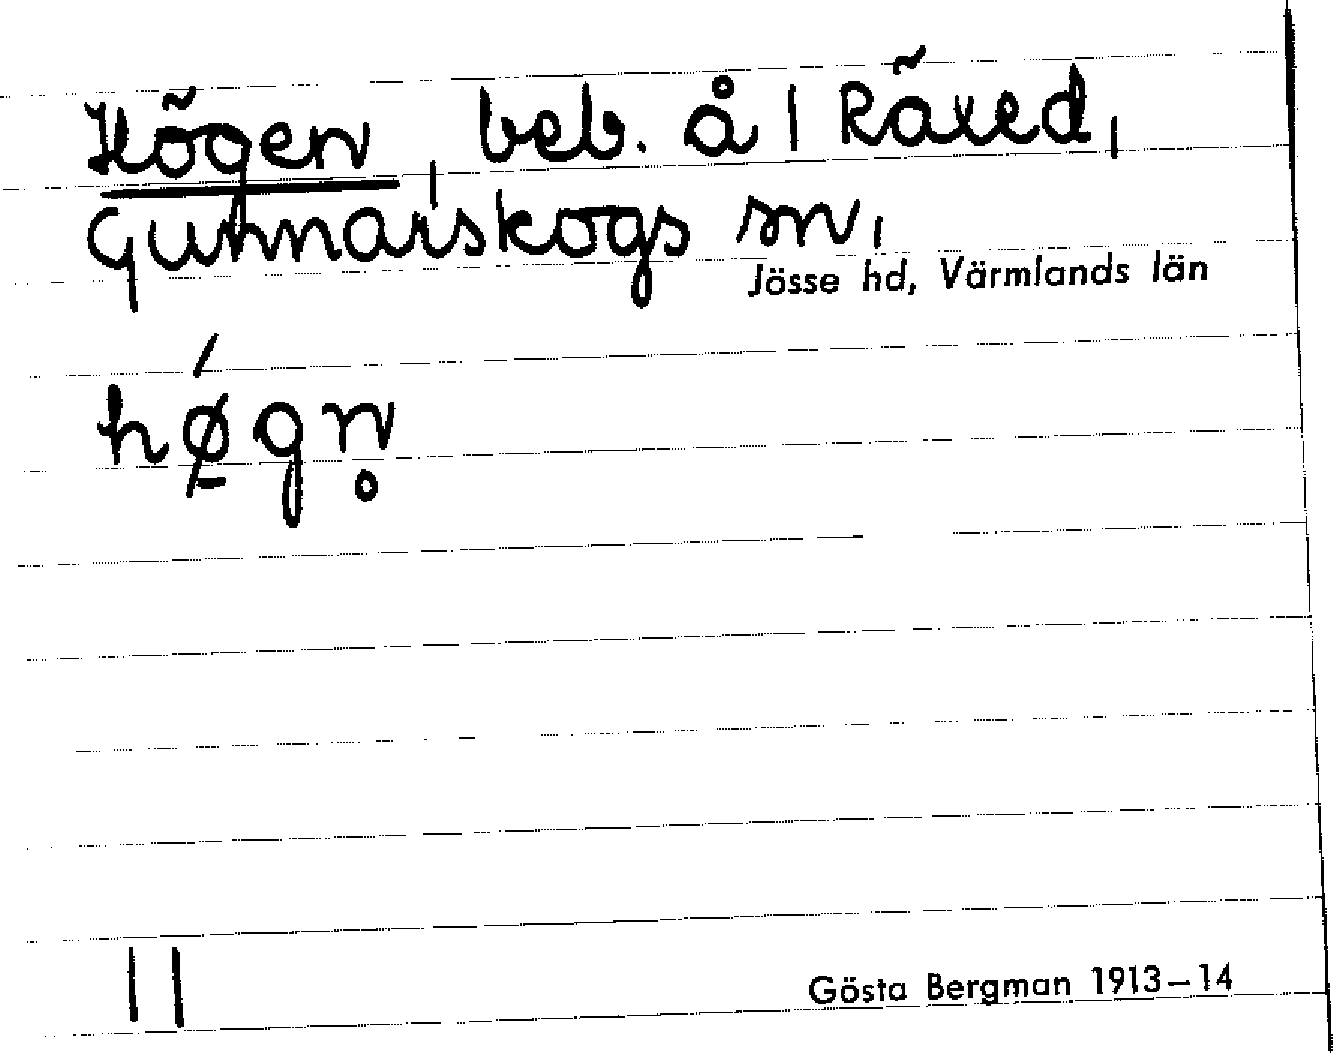 Högen, beb. å 1 Räved,
Gunnarskogs sn,
Jösse hd, Värmlands län
hǿ̠gn̥
11
Gösta Bergman 1913–14